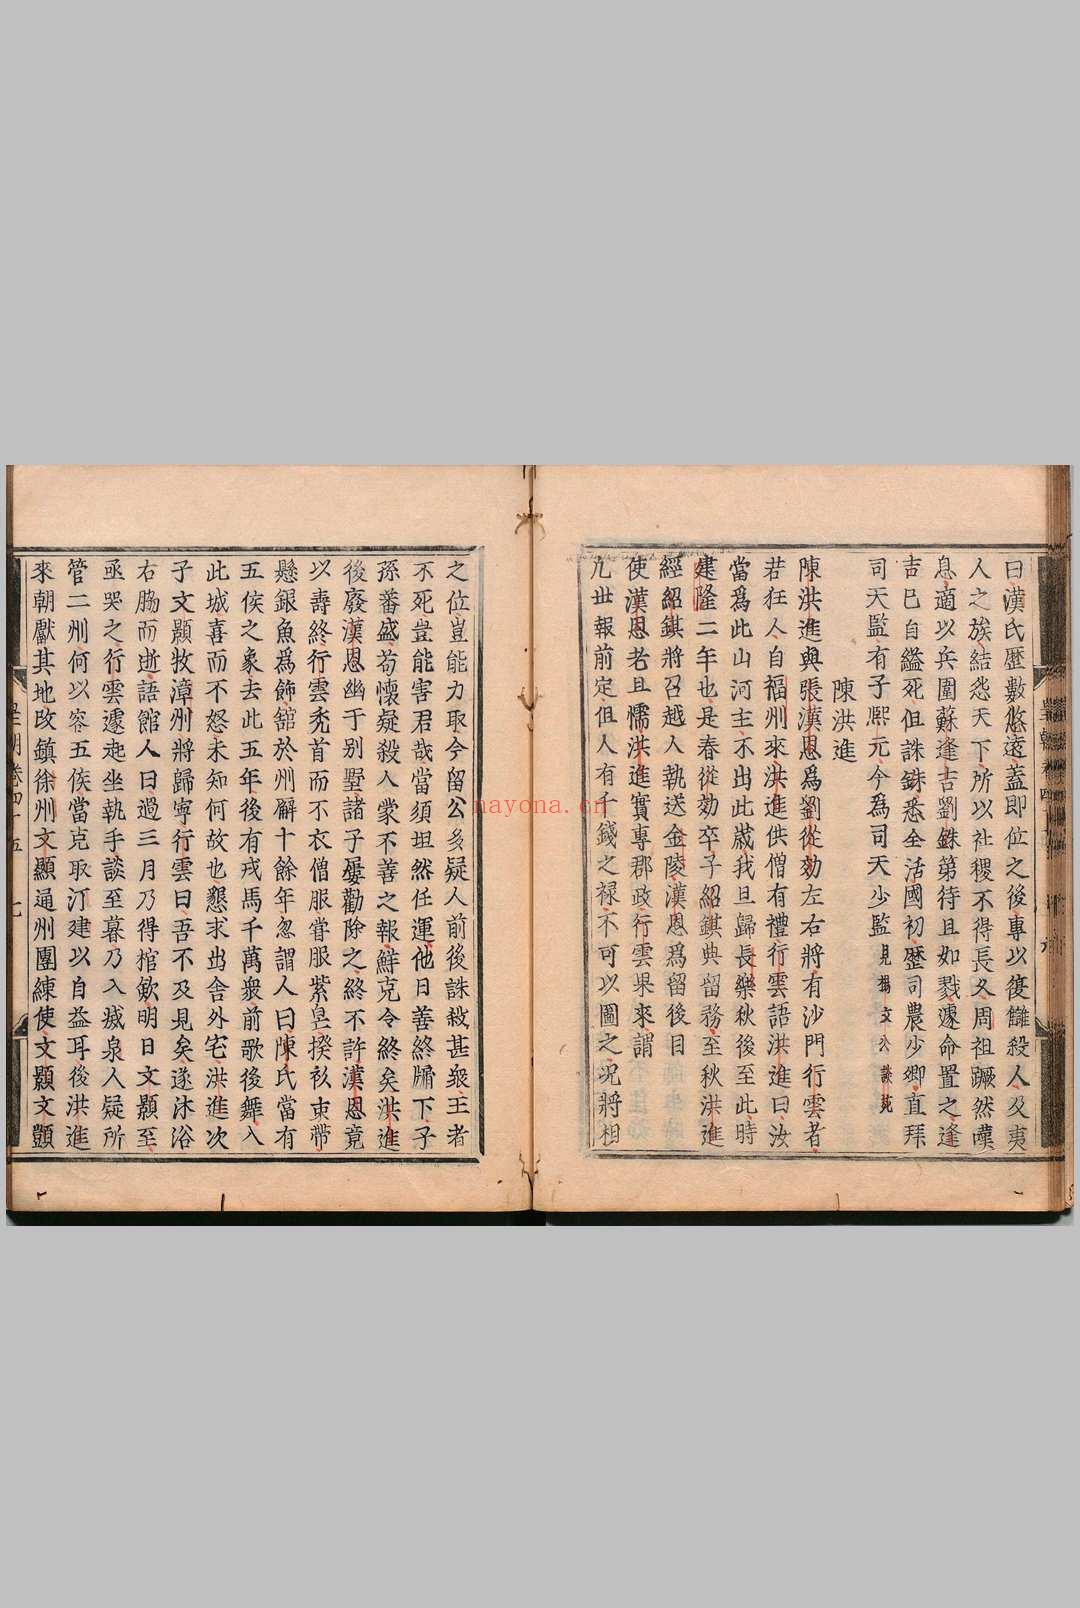 曰漢氏歷數悠遠蓋即位之後專以復讎殺人及夷
人之族結怨天下所以社稷不得長久周祖蹶然嘆
息適以兵圍蘇逢吉劉銖第待旦如戮遽命置之逢
吉已自縊死但誅銖悉全活國初歷司農少卿直拜
司天監有子熙元今為司天少監見楊文公談苑
陳洪進
陳洪進與張漢思爲劉從効左右將有沙門行雲者
若狂人自福州來洪進供僧有禮行雲語洪進曰汝
當爲此山河主不出此歲我且歸長樂秋後至此時
建隆二年也是春從効卒子紹錤典留務至秋洪進
經紹錤將召越人執送金陵漢思爲留後目
使漢思老且懦洪進實專郡政行雲果來謂
九世報前定但人有千錢之禄不可以圖之况將相
之位豈能力取今留公多疑人前後誅殺甚衆王者
不死豈能害君哉當須坦然任運他日善終牖下子
孫蕃盛苟懷疑殺人蒙不善之報鮮克令終矣洪進
後廢漢思幽于别墅諸子屢勸除之終不許漢思竟
以壽終行雲秃首而不衣僧服嘗服紫皂揆衫束帶
懸銀魚爲飾舘於州廨十餘年忽謂人曰陳氏當有
五侯之象去此五年後有戎馬千萬衆前歌後舞入
此城喜而不怒未知何故也懇求出舍外宅洪進次
子文顥牧漳州將歸寧行雲曰吾不及見矣遂沐浴
右脇而逝語館人曰過三月乃得棺歛明日文顥至
亟哭之行雲遽起坐執手談至暮乃入滅泉人疑所
管二州何以容五侯當克取汀建以自益耳後洪進
來朝獻其地改鎮徐州文顯通州團練使文顥文顗
皇朝卷四十五 七